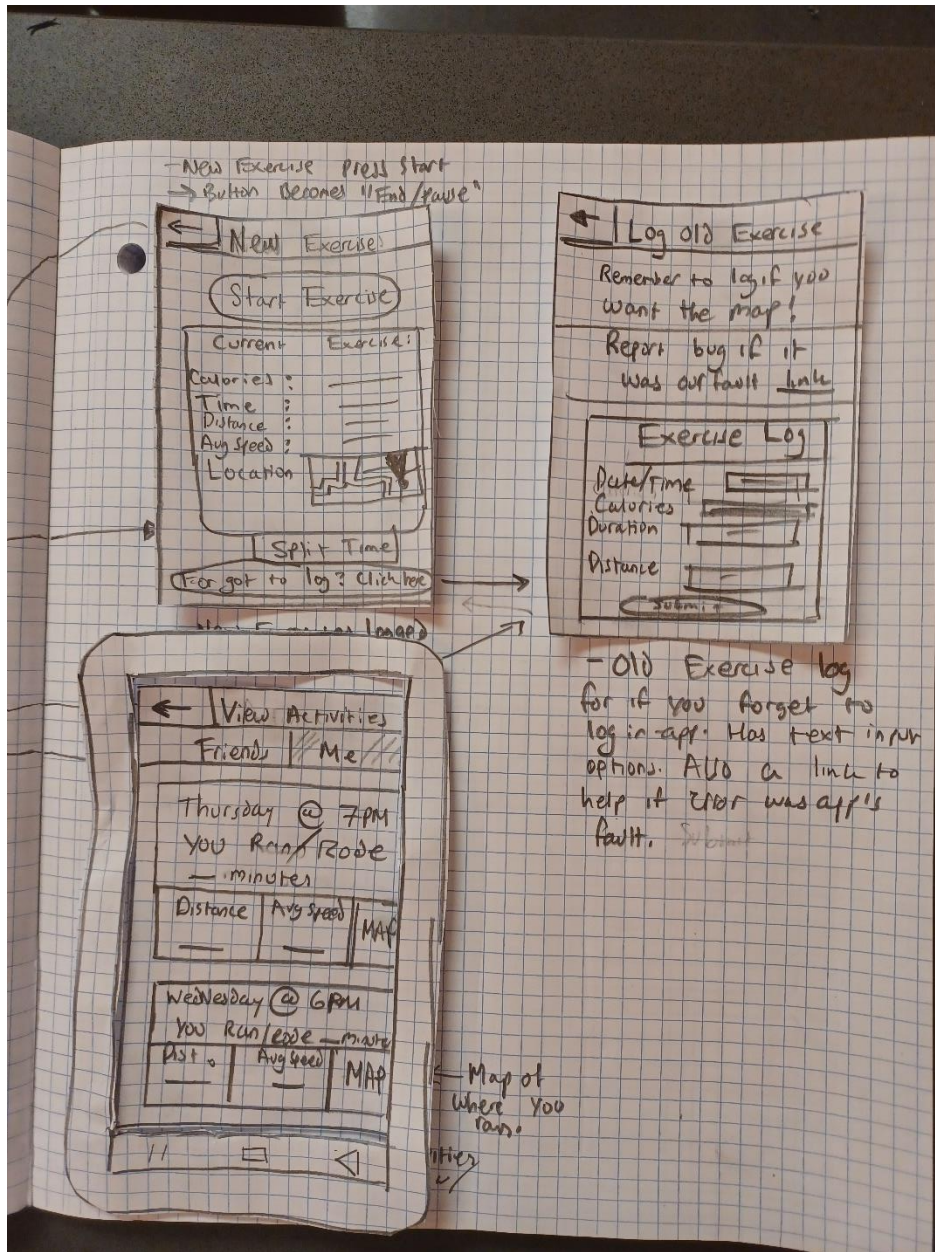 - New Exercise Press Start
→ Button Becomes "End/Pause"
← New Exercise
Start Exercise
Current Exercise:
Calories :
Time :
Distance :
Avg Speed :
Location
Split Time
Forgot to log? Click here
← Log old Exercise
Remember to log if you
want the map!
Report bug if it
was our fault link
Exercise Log
Date/Time
Calories
Duration
Distance
Submit
- Old Exercise log
for if you forget to
log in-app. Has text input
options. Also a link to
help if error was app's
fault.
← View Activities
Friends Me
Thursday @ 7PM
You Ran/Rode
__ minutes
Distance Avg Speed MAP
Wednesday @ 6PM
You Ran/Rode __ minute
Dist. Avg Speed MAP
← Map of
where you
ran.